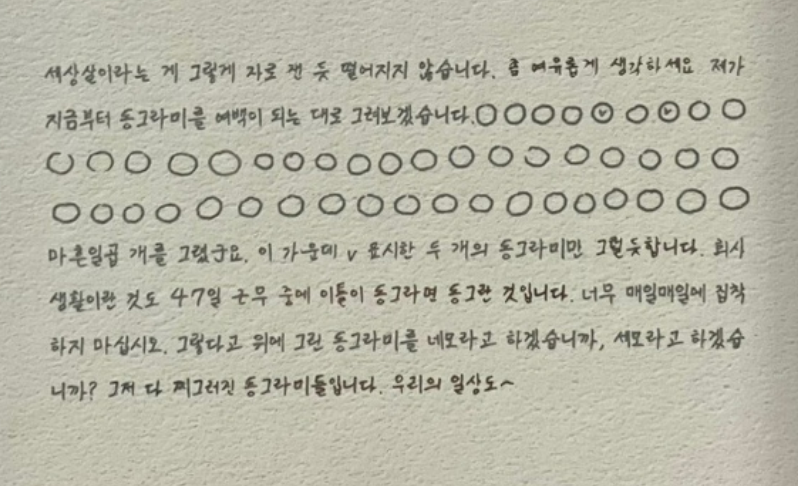 세상살이라는 게 그렇게 자로 잰 듯 떨어지지 않습니다. 좀 여유롭게 생각하세요 제가
지금부터 동그라미를 여백이 되는 대로 그려보겠습니다.
마흔일곱 개를 그렸군요. 이 가운데 v 표시한 두 개의 동그라미만 그럴듯합니다. 회사
생활이란 것도 47일 근무 중에 이틀이 동그라면 동그란 것입니다. 너무 매일매일에 집착
하지 마십시오. 그렇다고 위에 그린 동그라미를 네모라고 하겠습니까, 세모라고 하겠습
니까? 그저 다 찌그러진 동그라미들입니다. 우리의 일상도~